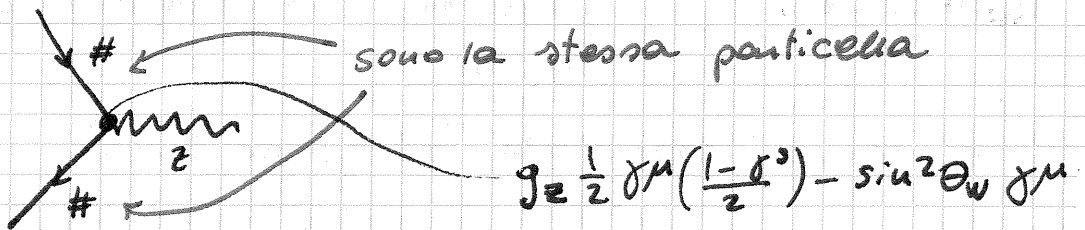 # sono la stessa particella
z
# g_z 1/2 γ^μ (1-γ^5 / 2) - sin²θ_w γ^μ